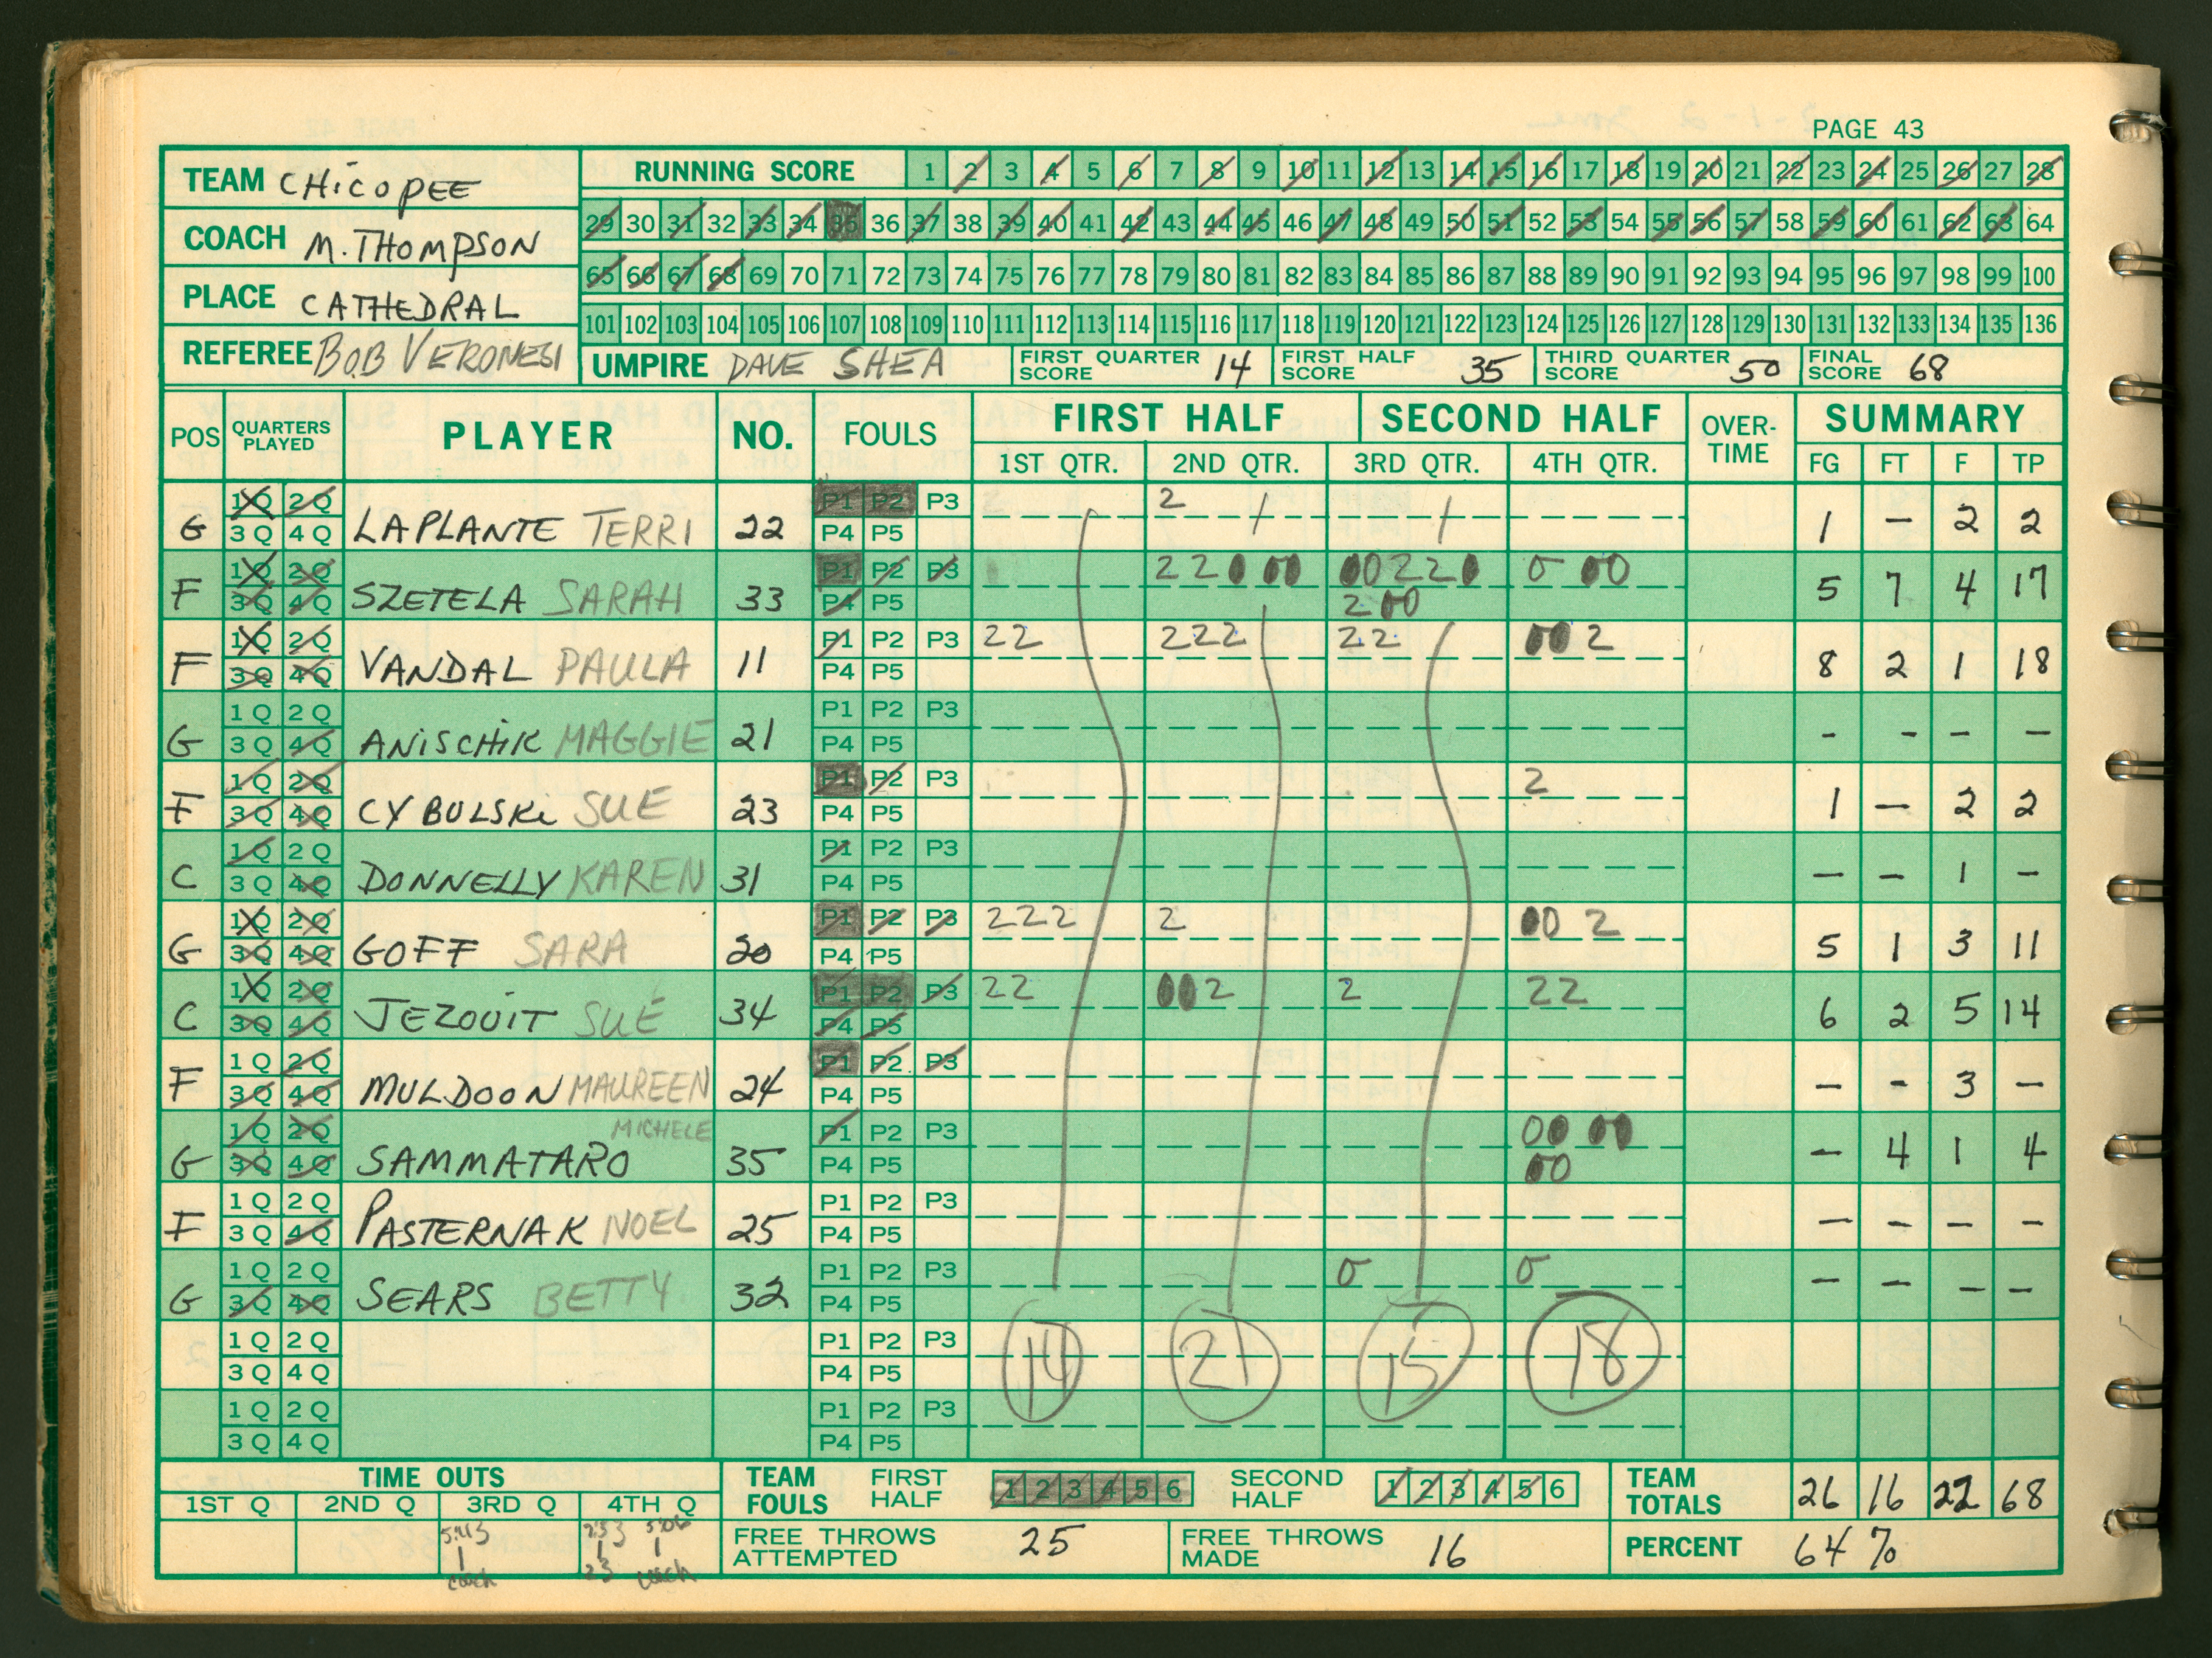 PAGE 43
TEAM CHICOPEE
RUNNING SCORE 1 2 3 4 5 6 7 8 9 10 11 12 13 14 15 16 17 18 19 20 21 22 23 24 25 26 27 28
29 30 31 32 33 34 35 36 37 38 39 40 41 42 43 44 45 46 47 48 49 50 51 52 53 54 55 56 57 58 59 60 61 62 63 64
COACH M. THOMPSON
65 66 67 68 69 70 71 72 73 74 75 76 77 78 79 80 81 82 83 84 85 86 87 88 89 90 91 92 93 94 95 96 97 98 99 100
PLACE CATHEDRAL
101 102 103 104 105 106 107 108 109 110 111 112 113 114 115 116 117 118 119 120 121 122 123 124 125 126 127 128 129 130 131 132 133 134 135 136
REFEREE BOB VERONESI
UMPIRE DAVE SHEA
FIRST QUARTER SCORE 14
FIRST HALF SCORE 35
THIRD QUARTER SCORE 50
FINAL SCORE 68
POS QUARTERS PLAYED PLAYER NO. FOULS FIRST HALF SECOND HALF OVER-TIME SUMMARY
1ST QTR. 2ND QTR. 3RD QTR. 4TH QTR. FG FT F TP
1 Q 2 Q P1 P2 P3 2
G 3 Q 4 Q LAPLANTE TERRI 22 P4 P5 1 – 2 2
1 Q 2 Q P1 P2 P3 2 2 0 0 0 0 0 2 2 0 0 0 0
F 3 Q 4 Q SZETELA SARAH 33 P4 P5 2 0 0 5 7 4 17
1 Q 2 Q P1 P2 P3 2 2 2 2 2 2 2 0 0 2
F 3 Q 4 Q VANDAL PAULA 11 P4 P5 8 2 1 18
1 Q 2 Q P1 P2 P3
G 3 Q 4 Q ANISCHIK MAGGIE 21 P4 P5 – – – –
1 Q 2 Q P1 P2 P3 2
F 3 Q 4 Q CYBULSKI SUE 23 P4 P5 1 – 2 2
1 Q 2 Q P1 P2 P3
C 3 Q 4 Q DONNELLY KAREN 31 P4 P5 – – 1 –
1 Q 2 Q P1 P2 P3 2 2 2 2 0 0 2
G 3 Q 4 Q GOFF SARA 20 P4 P5 5 1 3 11
1 Q 2 Q P1 P2 P3 2 2 0 0 2 2 2 2
C 3 Q 4 Q JEZOUIT SUE 34 P4 P5 6 2 5 14
1 Q 2 Q P1 P2 P3
F 3 Q 4 Q MULDOON MAUREEN 24 P4 P5 – – 3 –
1 Q 2 Q MICHELE P1 P2 P3 0 0 0 0
G 3 Q 4 Q SAMMATARO 35 P4 P5 0 0 – 4 1 4
1 Q 2 Q P1 P2 P3
F 3 Q 4 Q PASTERNAK NOEL 25 P4 P5 – – – –
1 Q 2 Q P1 P2 P3 0 0
G 3 Q 4 Q SEARS BETTY 32 P4 P5 – – – –
1 Q 2 Q P1 P2 P3
3 Q 4 Q P4 P5 14 21 15 18
1 Q 2 Q P1 P2 P3
3 Q 4 Q P4 P5
TIME OUTS
1ST Q 2ND Q 3RD Q 4TH Q
5:43 2:53 5:06
1 1 1
coach 23 coach
TEAM FOULS FIRST HALF 1 2 3 4 5 6 SECOND HALF 1 2 3 4 5 6
TEAM TOTALS 26 16 22 68
FREE THROWS ATTEMPTED 25
FREE THROWS MADE 16
PERCENT 64 %